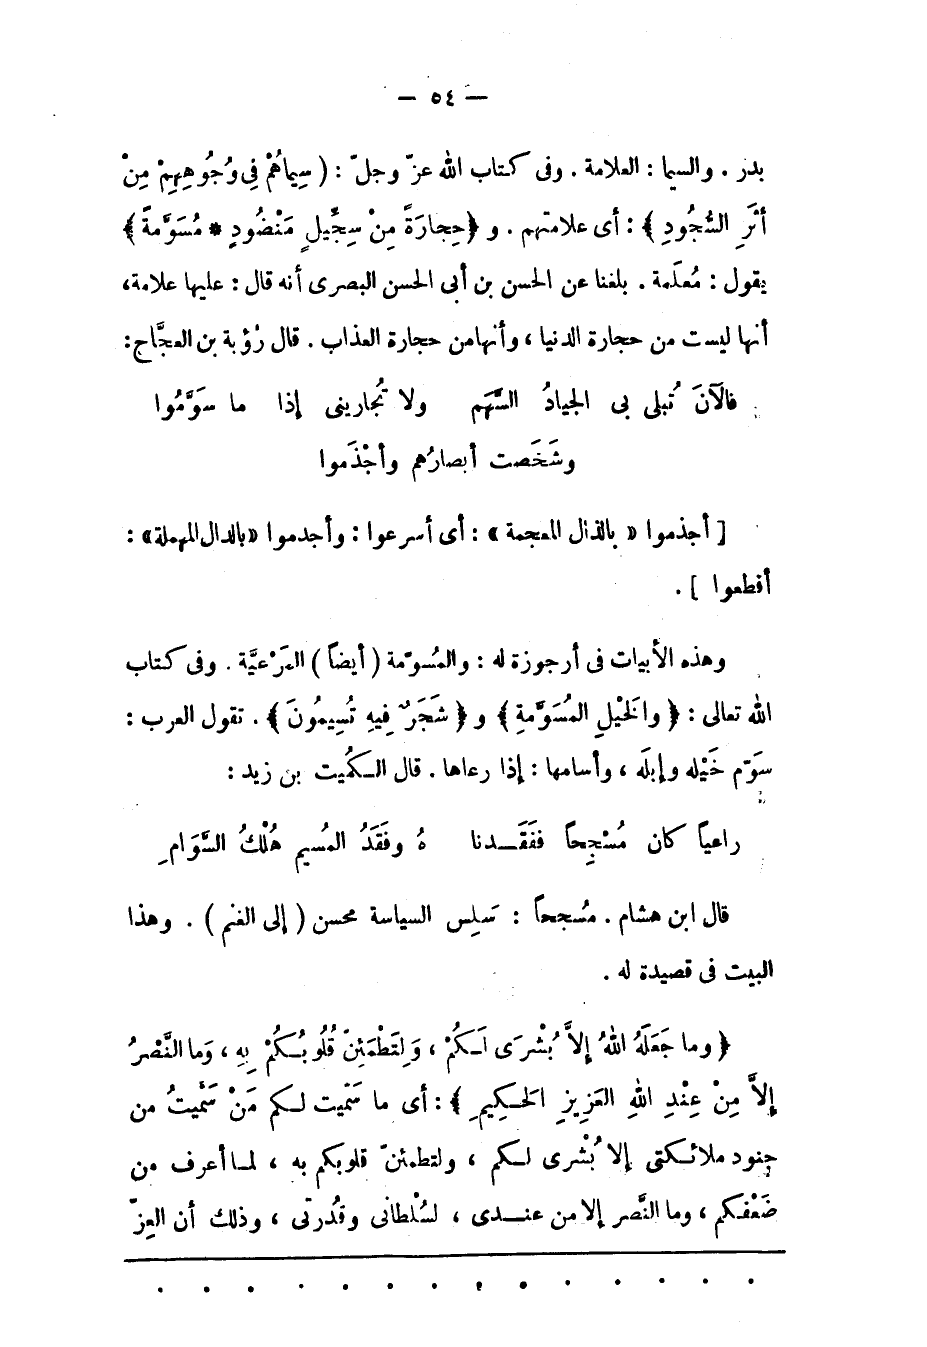 — ٥٤ —
بدر . والسيما : العلامة . وفى كتاب الله عزّ وجلّ : ( سِيماهُمْ فِى وُجُوهِهِمْ مِنْ
أثَرِ السُّجُودِ ﴾ : أى علامتهم . و ﴿حِجارَةً مِنْ سِجِّيلٍ مَنْضُودٍ * مُسَوَّمَةً ﴾
يقول : مُعلَمة . بلغنا عن الحسن بن أبى الحسن البصرى أنه قال : عليها علامة،
أنها ليست من حجارة الدنيا ، وأنهامن حجارة العذاب . قال رُؤبة بن العجَّاج:
فالآنَ تُبلى بى الجيادُ السَّهَم ولا تُجارينى إذا ما سوَّمُوا
وشَخَصت أبصارُهم وأجْذَموا
[ أجذموا « بالذال المعجمة » : أى أسرعوا : وأجدموا «بالدال المهملة» :
أقطعوا ] .
وهذه الأبيات فى أرجوزة له : والمُسوّمة ( أيضاً ) المَرْعيَّة . وفى كتاب
الله تعالى : ﴿ والخَيْلِ المُسَوَّمةِ ﴾ و ﴿ شَجَرٌ فِيهِ تُسِيمُونَ ﴾ . تقول العرب :
سَوّم خَيْله وإبلَه ، وأسامها : إذا رعاها . قال الكُميت بن زيد :
راعياً كان مُسْجِحاً ففَقَدنا هُ وفَقَدُ المُسيم هُلْكُ السَّوَامِ
قال ابن هشام . مُسجحاً : سَلِس السياسة محسن ( إلى الغنم ) . وهذا
البيت فى قصيدة له .
﴿ وما جَعَلَهُ اللهُ إلاَّ بُشْرَى لَكُمْ ، وَلِتَطْمَئِنّ قُلُوبُكُمْ بِهِ ، وَما النَّصْرُ
إلاَّ مِنْ عِنْدِ اللهِ العَزِيزِ الحَكِيمِ ﴾ : أى ما سَمّيت لكم مَنْ سَمَّيتُ من
جنود ملائكتى إلا بُشْرى لكم ، ولتطمئنّ قلوبكم به ، لما أعرف من
ضَعْفكم ، وما النَّصر إلا من عندى ، لسُلْطانى وقُدرتى ، وذلك أن العِزّ
. . . . . . . . . . . . . .